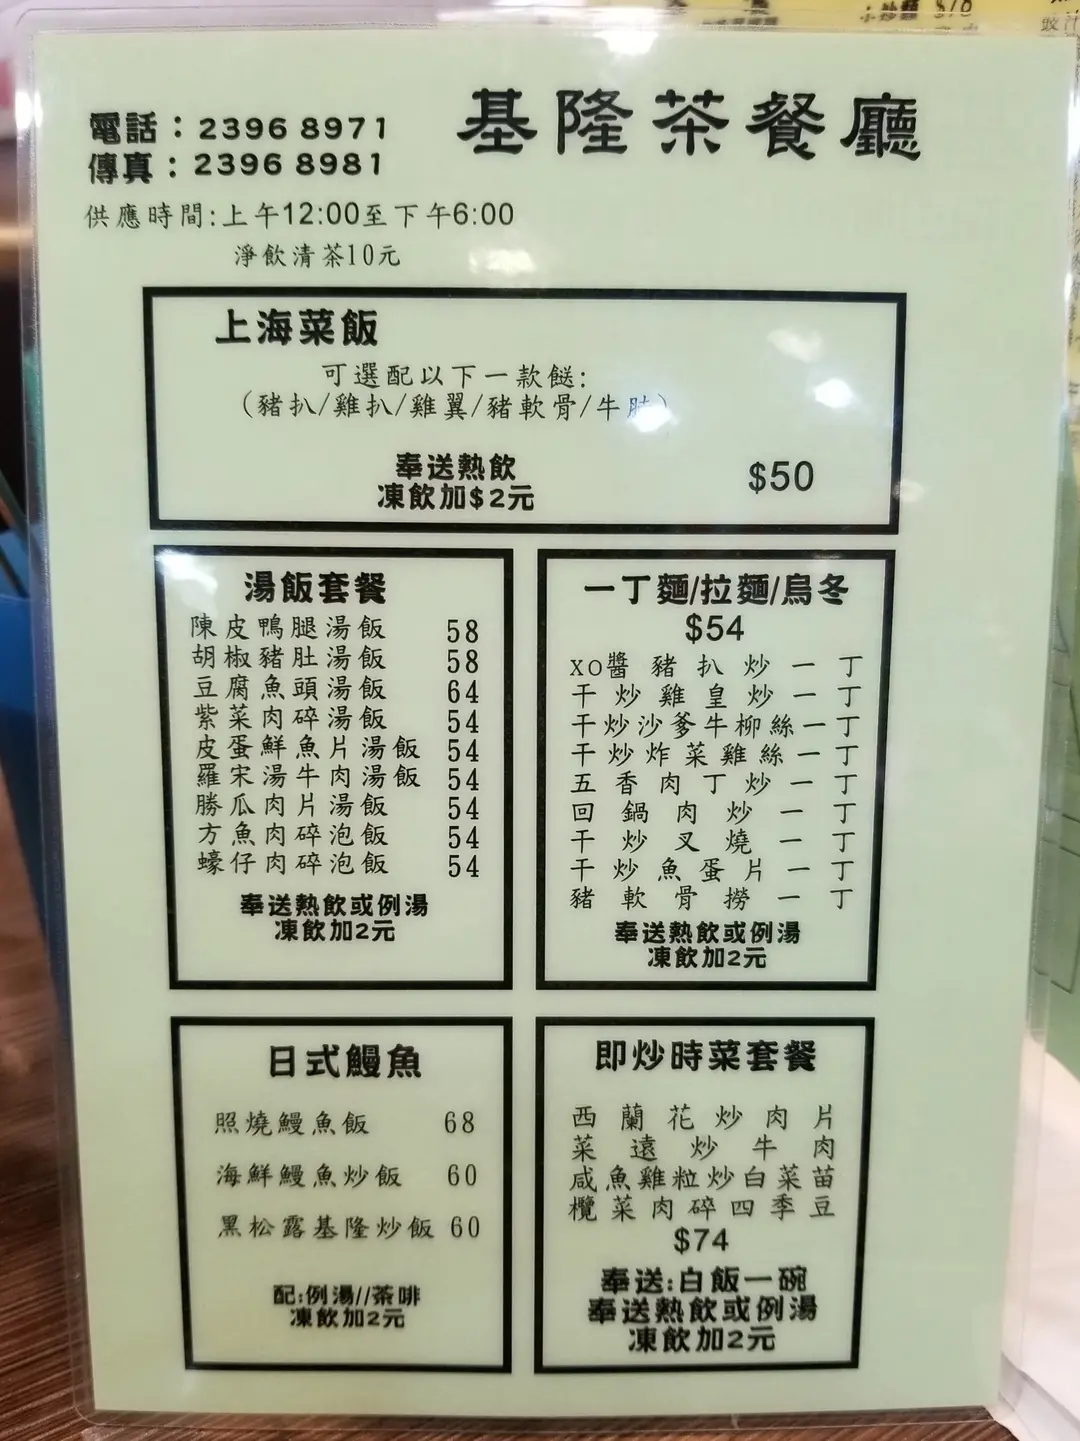 基隆茶餐廳
電話：2396 8971
傳真：2396 8981
供應時間:上午12:00至下午6:00
淨飲清茶10元
上海菜飯
可選配以下一款餸:
(豬扒/雞扒/雞翼/豬軟骨/牛腩)
奉送熱飲
凍飲加$2元
$50
湯飯套餐
陳皮鴨腿湯飯 58
胡椒豬肚湯飯 58
豆腐魚頭湯飯 64
紫菜肉碎湯飯 54
皮蛋鮮魚片湯飯 54
羅宋湯牛肉湯飯 54
勝瓜肉片湯飯 54
方魚肉碎泡飯 54
蠔仔肉碎泡飯 54
奉送熱飲或例湯
凍飲加2元
一丁麵/拉麵/烏冬
$54
XO醬豬扒炒一丁
干炒雞皇炒一丁
干炒沙爹牛柳絲一丁
干炒炸菜雞絲一丁
五香肉丁炒一丁
回鍋肉炒一丁
干炒叉燒一丁
干炒魚蛋片一丁
豬軟骨撈一丁
奉送熱飲或例湯
凍飲加2元
日式鰻魚
照燒鰻魚飯 68
海鮮鰻魚炒飯 60
黑松露基隆炒飯 60
配:例湯//茶啡
凍飲加2元
即炒時菜套餐
西蘭花炒肉片
菜遠炒牛肉
咸魚雞粒炒白菜苗
欖菜肉碎四季豆
$74
奉送:白飯一碗
奉送熱飲或例湯
凍飲加2元